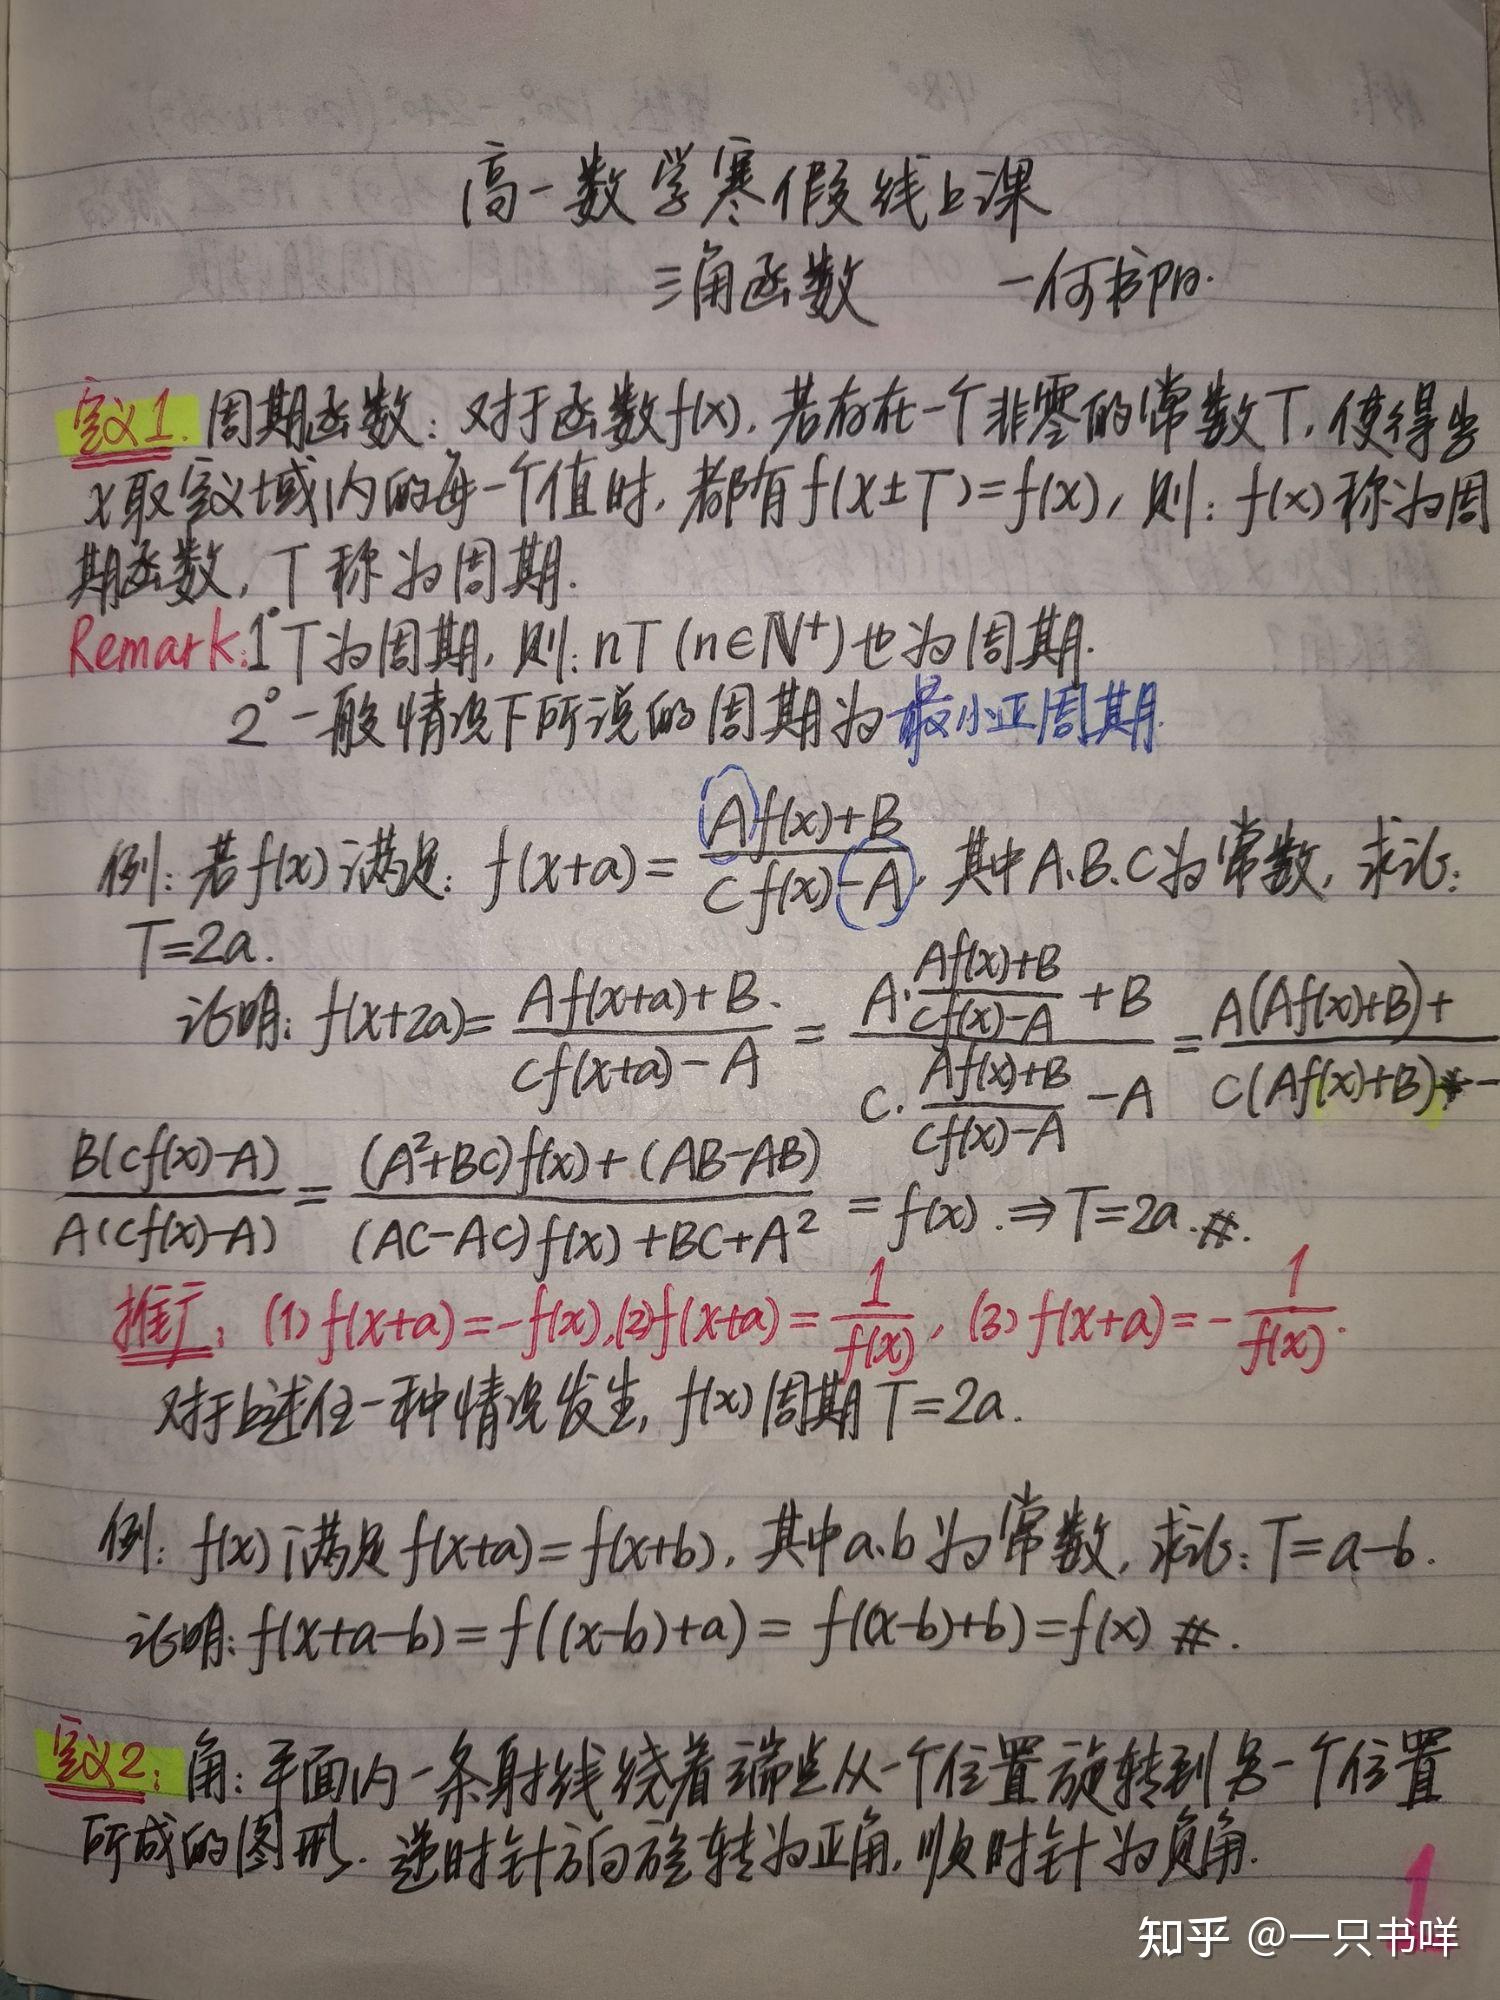 高一数学寒假线上课
三角函数 一何书阳.
定义1. 周期函数: 对于函数f(x), 若存在一个非零的常数T, 使得当
x取定义域内的每一个值时, 都有f(x±T)=f(x), 则: f(x)称为周
期函数, T称为周期.
Remark: 1° T为周期, 则: nT (n∈ℕ⁺)也为周期.
2° 一般情况下所说的周期为最小正周期.
例: 若f(x)满足: f(x+a)=(Af(x)+B)/(Cf(x)-A), 其中A、B、C为常数, 求证:
T=2a.
证明: f(x+2a)=(Af(x+a)+B)/(Cf(x+a)-A)=(A·(Af(x)+B)/(Cf(x)-A)+B)/(C·(Af(x)+B)/(Cf(x)-A)-A)=(A(Af(x)+B)+)/(C(Af(x)+B)-)
(B(Cf(x)-A))/(A(Cf(x)-A))=((A²+BC)f(x)+(AB-AB))/((AC-AC)f(x)+BC+A²)=f(x).⇒T=2a.#.
推广: (1) f(x+a)=-f(x), (2) f(x+a)=1/f(x), (3) f(x+a)=-1/f(x).
对于上述任一种情况发生, f(x)周期T=2a.
例: f(x)满足f(x+a)=f(x+b), 其中a、b为常数, 求证: T=a-b.
证明: f(x+a-b)=f((x-b)+a)=f((x-b)+b)=f(x) #.
定义2: 角: 平面内一条射线绕着端点从一个位置旋转到另一个位置
所成的图形. 逆时针方向旋转为正角, 顺时针为负角.
1
知乎 @一只书咩